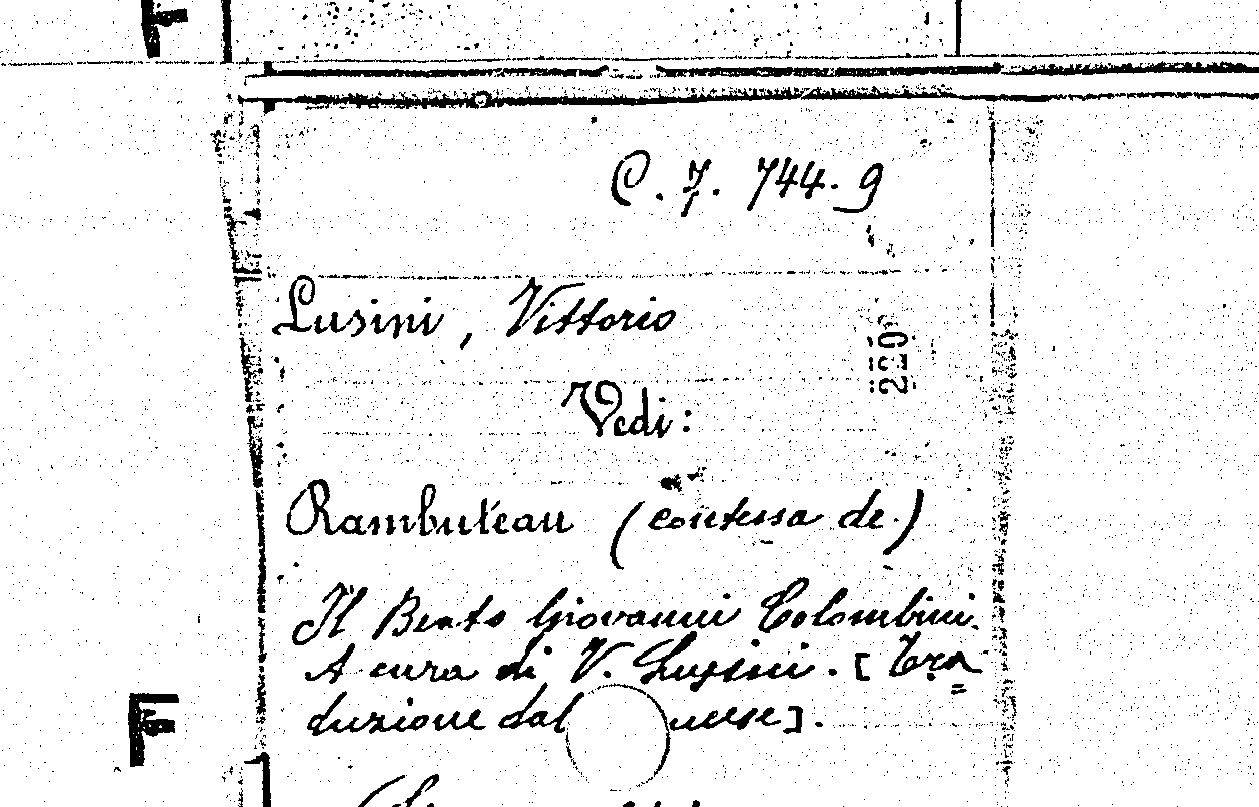 F
C. 7. 744. 9
Lusini, Vittorio
220
Vedi:
Rambuteau (contessa de)
Il Beato Giovanni Colombini.
A cura di V. Lusini. [Tra=
duzione dal
F